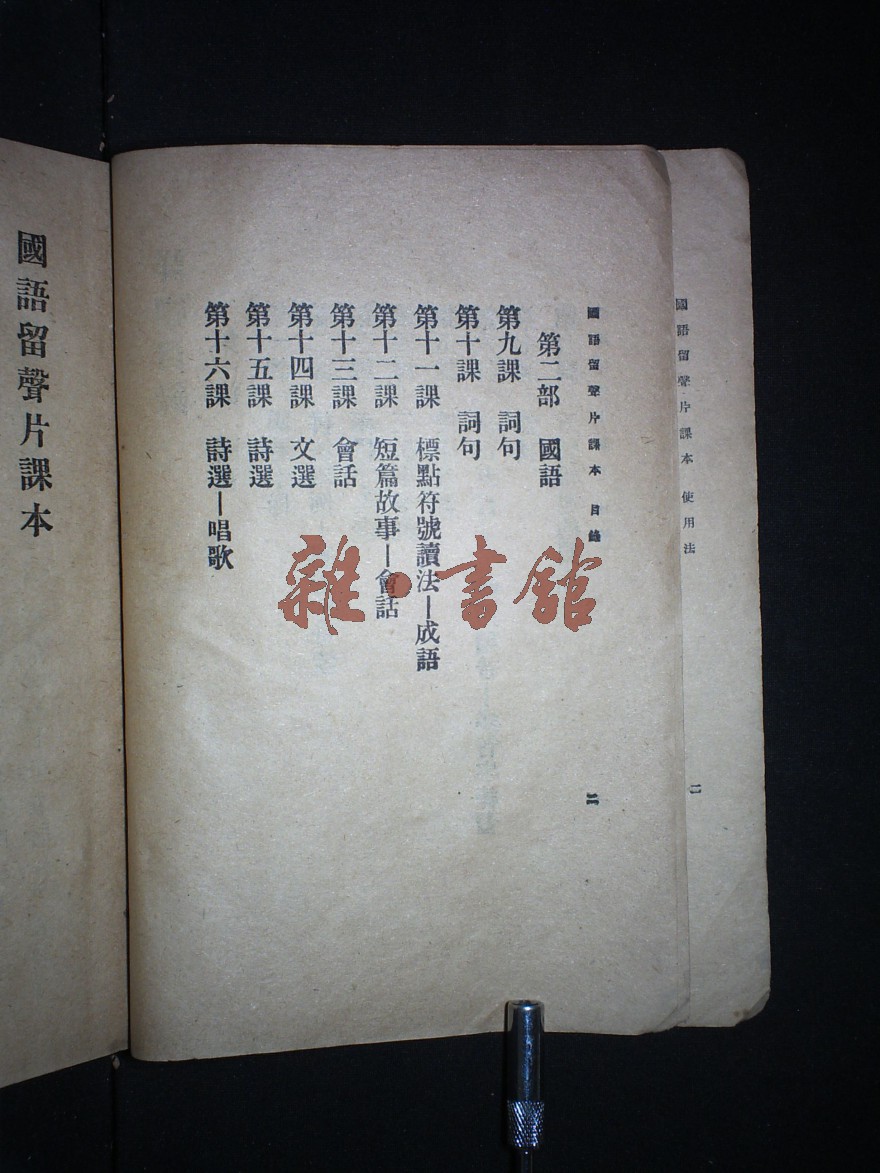 國語留聲片課本 使用法
二
國語留聲片課本 目錄
二
第二部 國語
第九課 詞句
第十課 詞句
第十一課 標點符號讀法—成語
第十二課 短篇故事—會話
第十三課 會話
第十四課 文選
第十五課 詩選
第十六課 詩選—唱歌
國語留聲片課本
雜·書館